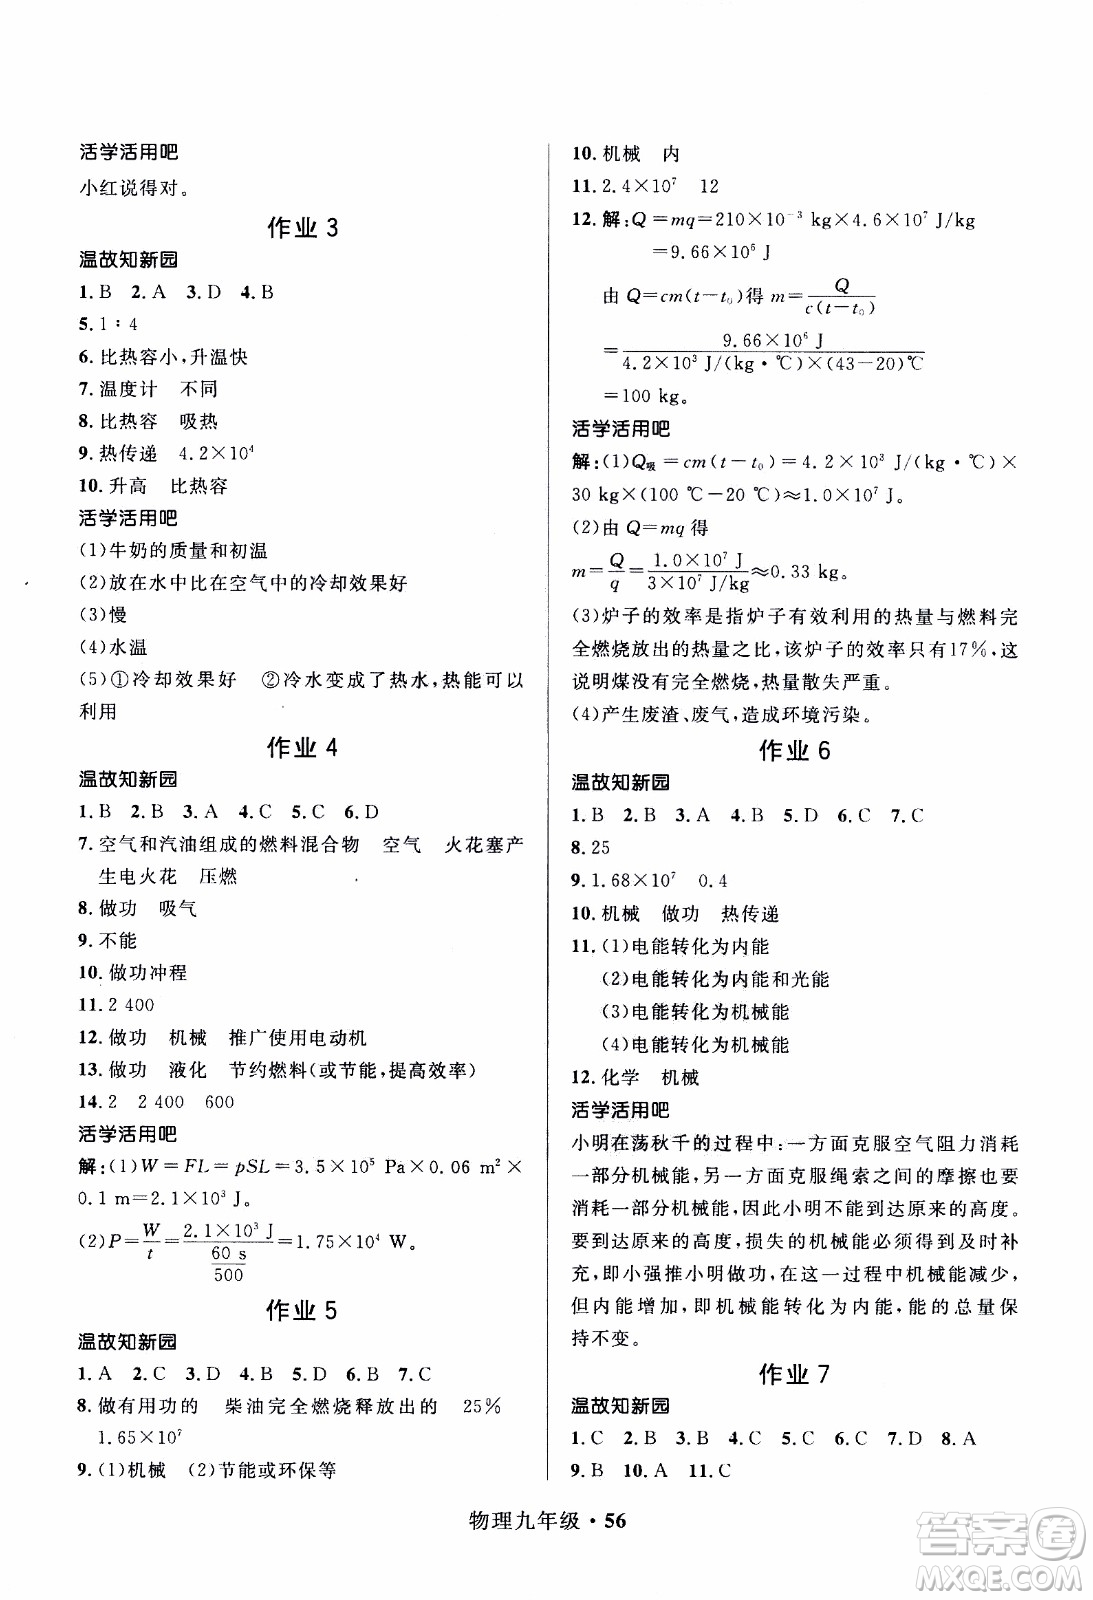 活学活用吧
小红说得对。
作业 3
温故知新园
1. B 2. A 3. D 4. B
5. 1∶4
6. 比热容小,升温快
7. 温度计 不同
8. 比热容 吸热
9. 热传递 4.2×10⁴
10. 升高 比热容
活学活用吧
(1)牛奶的质量和初温
(2)放在水中比在空气中的冷却效果好
(3)慢
(4)水温
(5)①冷却效果好 ②冷水变成了热水,热能可以
利用
作业 4
温故知新园
1. B 2. B 3. A 4. C 5. C 6. D
7. 空气和汽油组成的燃料混合物 空气 火花塞产
生电火花 压燃
8. 做功 吸气
9. 不能
10. 做功冲程
11. 2 400
12. 做功 机械 推广使用电动机
13. 做功 液化 节约燃料(或节能,提高效率)
14. 2 2 400 600
活学活用吧
解:(1)W=FL=pSL=3.5×10⁵ Pa×0.06 m²×
0.1 m=2.1×10³ J。
(2)P=W/t=2.1×10³ J/(60 s/500)=1.75×10⁴ W。
作业 5
温故知新园
1. A 2. C 3. D 4. C 5. D 6. B 7. C
8. 做有用功的 柴油完全燃烧释放出的 25%
1.65×10⁷
9. (1)机械 (2)节能或环保等
10. 机械 内
11. 2.4×10⁷ 12
12. 解:Q=mq=210×10⁻³ kg×4.6×10⁷ J/kg
=9.66×10⁶ J
由 Q=cm(t-t₀)得 m=Q/c(t-t₀)
=9.66×10⁶ J/4.2×10³ J/(kg·℃)×(43-20)℃
=100 kg。
活学活用吧
解:(1)Q吸=cm(t-t₀)=4.2×10³ J/(kg·℃)×
30 kg×(100 ℃-20 ℃)≈1.0×10⁷ J。
(2)由 Q=mq 得
m=Q/q=1.0×10⁷ J/3×10⁷ J/kg≈0.33 kg。
(3)炉子的效率是指炉子有效利用的热量与燃料完
全燃烧放出的热量之比,该炉子的效率只有17%,这
说明煤没有完全燃烧,热量散失严重。
(4)产生废渣、废气,造成环境污染。
作业 6
温故知新园
1. B 2. B 3. A 4. B 5. D 6. C 7. C
8. 25
9. 1.68×10⁷ 0.4
10. 机械 做功 热传递
11. (1)电能转化为内能
(2)电能转化为内能和光能
(3)电能转化为机械能
(4)电能转化为机械能
12. 化学 机械
活学活用吧
小明在荡秋千的过程中:一方面克服空气阻力消耗
一部分机械能,另一方面克服绳索之间的摩擦也要
消耗一部分机械能,因此小明不能到达原来的高度。
要到达原来的高度,损失的机械能必须得到及时补
充,即小强推小明做功,在这一过程中机械能减少,
但内能增加,即机械能转化为内能,能的总量保
持不变。
作业 7
温故知新园
1. C 2. B 3. B 4. C 5. C 6. C 7. D 8. A
9. B 10. A 11. C
物理九年级·56
答案圈
MXQE.COM